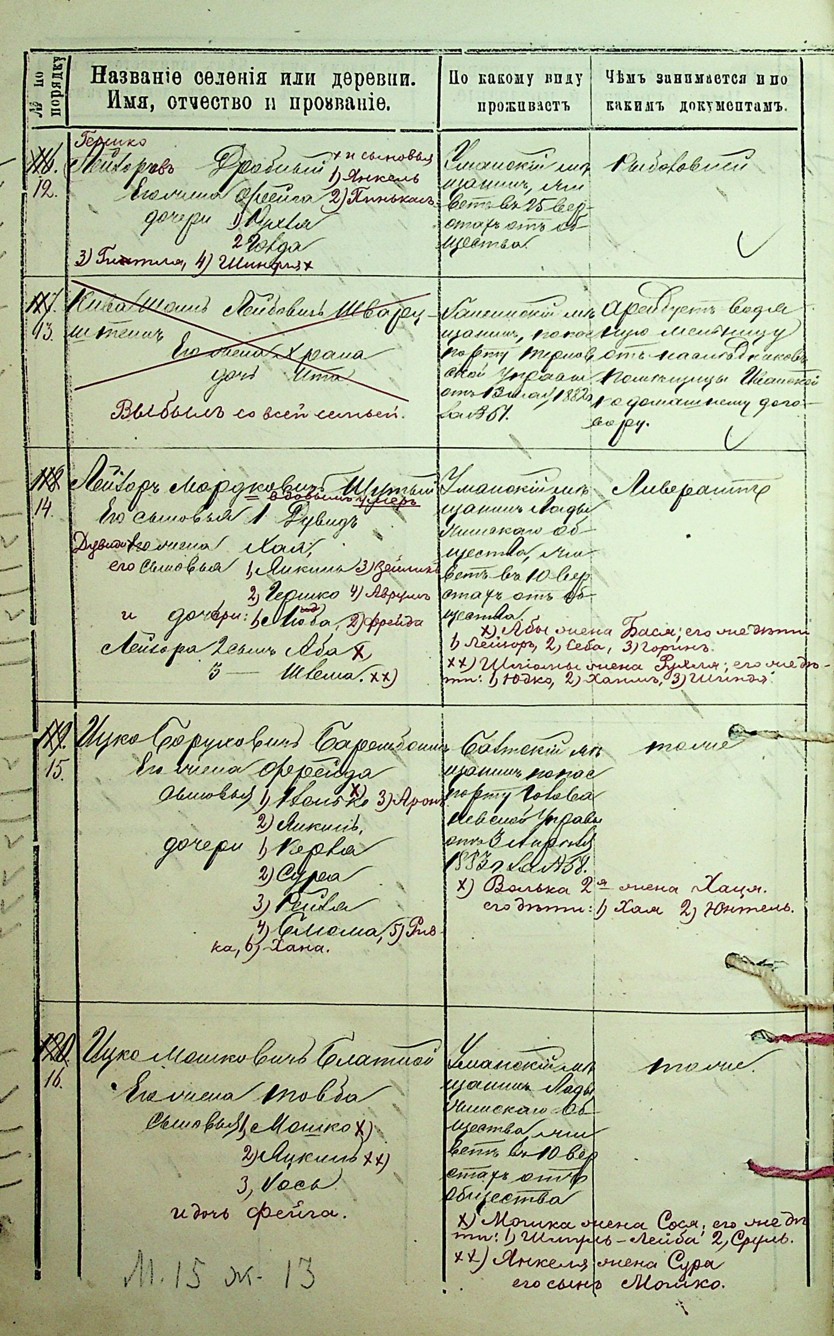 № по порядку
Названіе селенія или деревни.
Имя, отчество и прозваніе.
По какому виду
проживастъ
Чѣмъ занимается и по
какимъ документамъ.
116.
12.
Гершко
Лейзоровъ Дробный х и сыновья
1) Янкель
Его жена Фрейга 2) Пинькасъ
дочери 1) Рухля
2 Голда
3) Гитля, 4) Шиндля
Уманскій мѣ
щанинъ, жи
ветъ въ 25 вер
стахъ отъ об
щества
Рыболовней
117.
13.
Шоилъ Лейбовичъ Шварц-
штеинъ
Его жена Храна
дочь Ита
Выбылъ со всей семьей.
мѣ
щанинъ, по пас
порту
ской Управы
отъ 13 мая 1882
за № 51.
Арендуетъ водя
ную мельницу
отъ наслѣдниковъ
помѣщицы
по домашнему дого-
вору.
118
14.
Лейзоръ Мордковичъ Шутый
умеръ
Его сыновья 1 Дувидъ
Дувида жена Хая,
его сыновья 1) Янкель 3) Зейликъ
2) Гершко 4) Аврумъ
и дочери: 1) Люба, 2) Фрейда
Лейзора 2 сынъ Аба х
3 — Шлема. хх)
Уманскій мѣ
щанинъ Лады
жинскаго об
щества, жи
ветъ въ 10 вер
стахъ отъ об
щества
х) Абы жена Бася; его же дѣти
1) Лейзоръ, 2) Себа, 3)
хх) Шлемы жена Рухля; его же дѣ-
ти: 1) Юдко, 2) Хаимъ, 3) Шиндля.
119.
15.
Ицко Боруховичъ Барембоимъ
Его жена Фрейда
сыновья 1) Волько х) 3) Аронъ
2) Янкель,
дочери 1)
2) Сура
3) Рейзя
4) 5) Рив-
ка, 6) Хана.
Балтскій мѣ
щанинъ по пас
порту Голова
невской Управы
отъ 3 Апрѣля
1883 г за № 58.
х) Волька 2я жена Хаця.
его дѣти: 1) Хая 2) Юнтель.
тоже
120
16.
Ицко Мошковичъ Блатной
Его жена Товба
сыновья 1) Мошко х)
2) Янкель хх)
3, Іось
и дочь Фейга.
Уманскій мѣ
щанинъ Лады
жинскаго об
щества жи
ветъ въ 10 вер
стахъ отъ
общества
тоже.
х) Мошка жена Сося; его же дѣ
ти: 1) Шмуль-Лейба 2, Сруль.
хх) Янкеля жена Сура
его сынъ Мошко.
М. 15 ж. 13